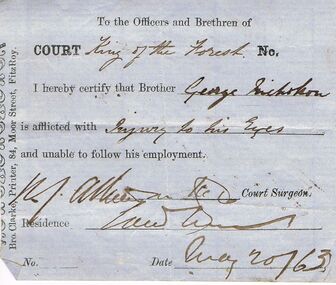 To the Officers and Brethren of
COURT King of the Forest No.
I hereby certify that Brother George Nicholson
is afflicted with Injury to his Eyes
and unable to follow his employment.
Court Surgeon.
Residence
No. Date May 20/63
Bro. Clarke, Printer, 84, Moor Street, FitzRoy.